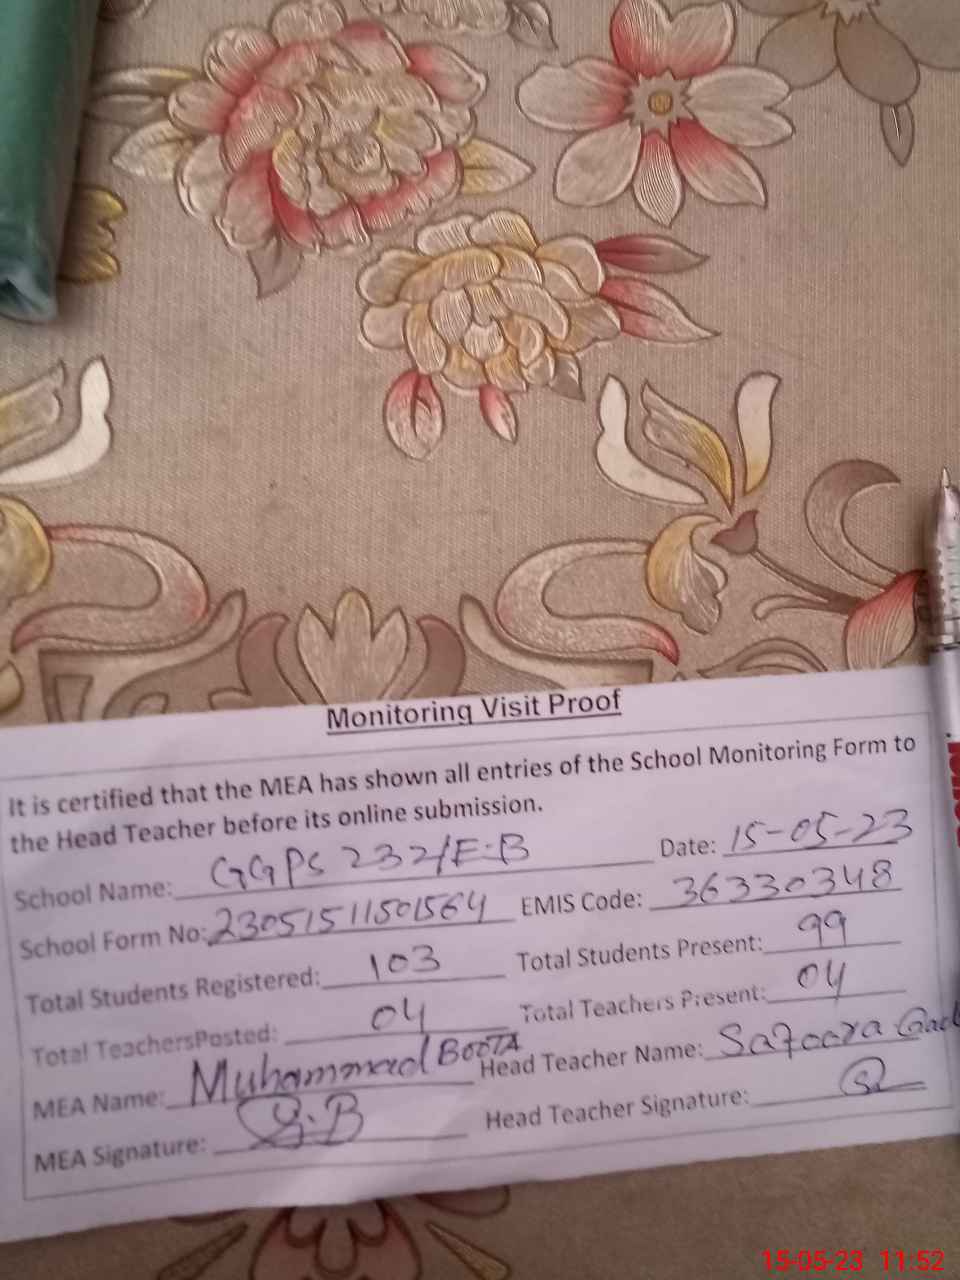 Monitoring Visit Proof
It is certified that the MEA has shown all entries of the School Monitoring Form to
the Head Teacher before its online submission.
School Name: GGPS 232/E.B Date: 15-05-23
School Form No: 23051511501564 EMIS Code: 36330348
Total Students Registered: 103 Total Students Present: 99
Total TeachersPosted: 04 Total Teachers Present: 04
MEA Name: Muhammad BOOTA Head Teacher Name: Safoora
MEA Signature: Head Teacher Signature:
15-05-23 11:52